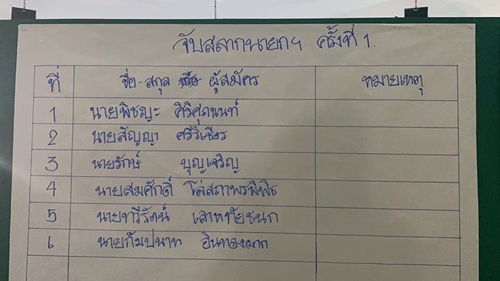 จับสลากนายกฯ ครั้งที่ 1.
ที่ ชื่อ-สกุล ผู้สมัคร หมายเหตุ
1 นายพิชญะ ศิริศุภนนท์
2 นายสัญญา ศรีวิเชียร
3 นายรักษ์ บุญเจริญ
4 นายสมศักดิ์ โล่สถาพรพิพิธ
5 นายทวีรัตน์ เลาหทัยชนก
6 นายกัมปนาท อินทองมาก